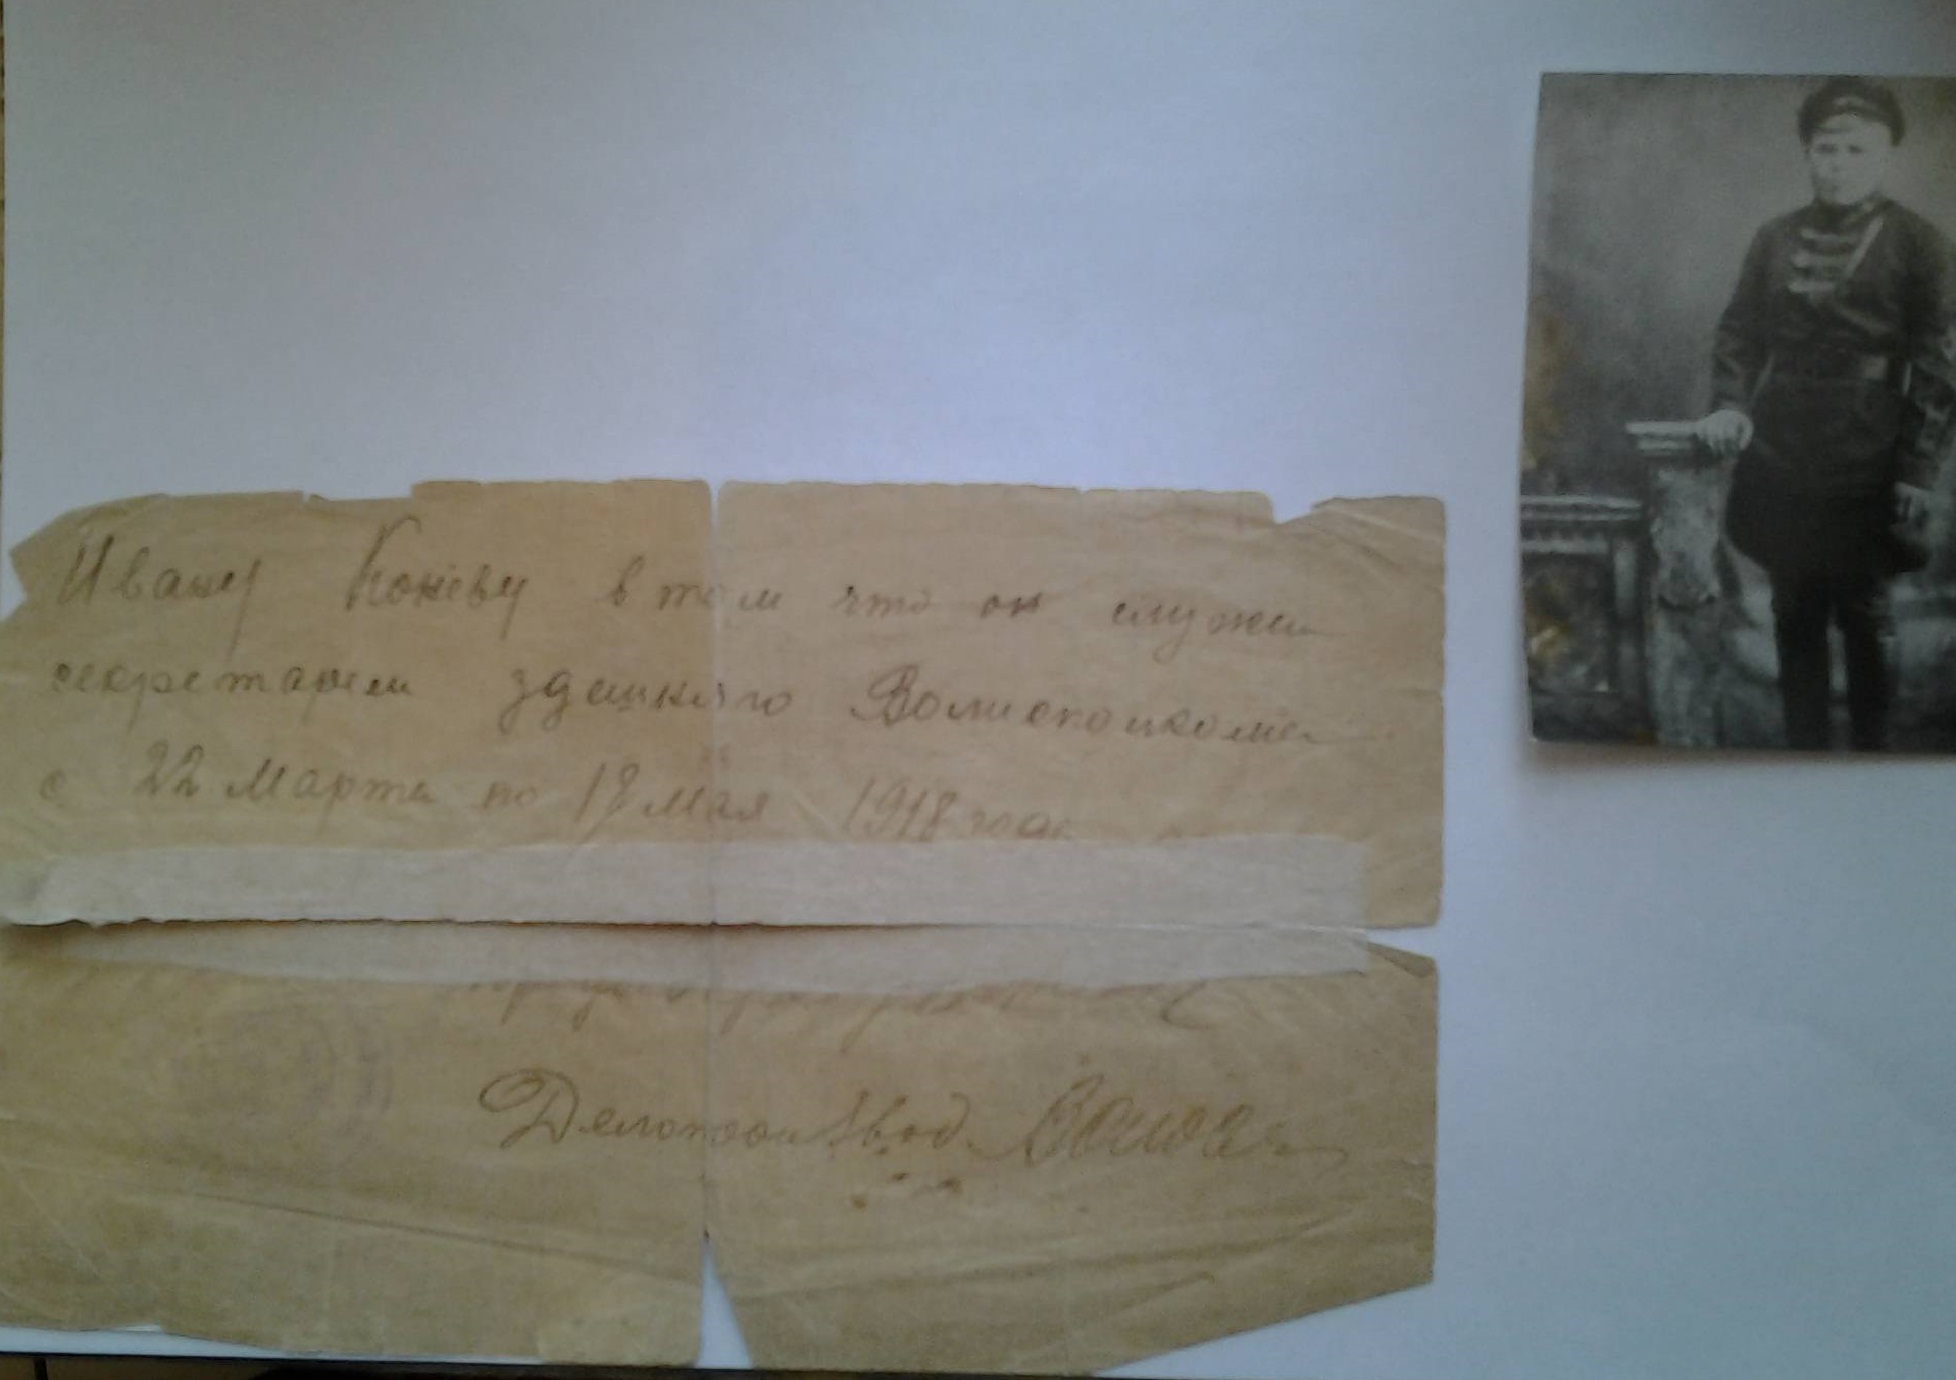 Ивану Коневу в том что он служил
секретарем здешняго Волисполкома
с 22 Марта по 18 мая 1918 года
Делопроизвод.